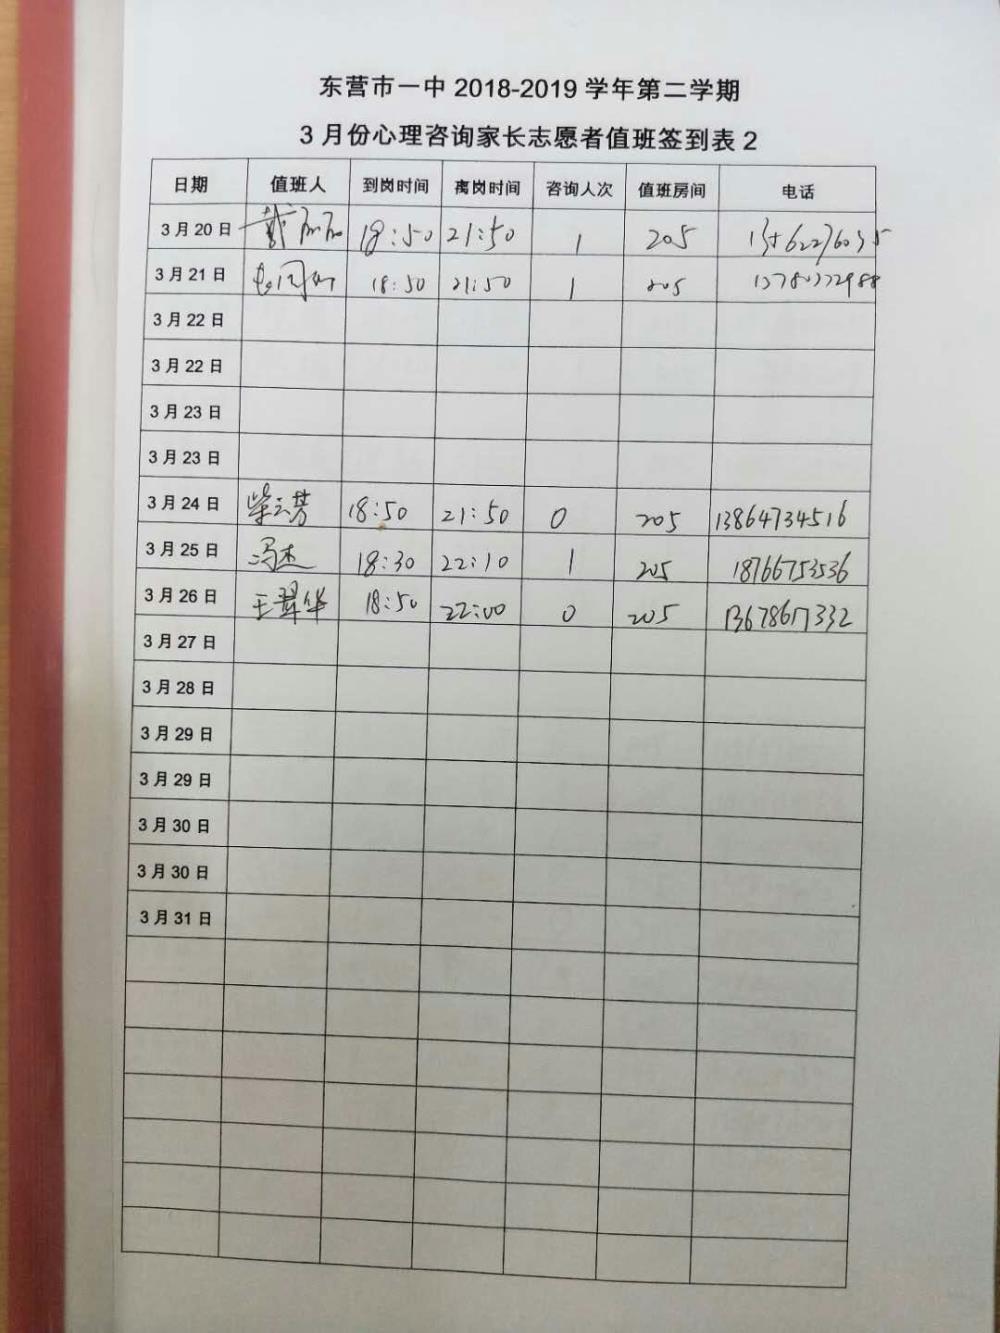 东营市一中 2018-2019 学年第二学期
3 月份心理咨询家长志愿者值班签到表 2
日期 值班人 到岗时间 离岗时间 咨询人次 值班房间 电话
3 月 20 日 戴 18:50 21:50 1 205
3 月 21 日 18:50 21:50 1 205
3 月 22 日
3 月 22 日
3 月 23 日
3 月 23 日
3 月 24 日 柴云芳 18:50 21:50 0 205 13864734516
3 月 25 日 冯杰 18:30 22:10 1 205 18766753536
3 月 26 日 王翠华 18:50 22:00 0 205 13678617332
3 月 27 日
3 月 28 日
3 月 29 日
3 月 29 日
3 月 30 日
3 月 30 日
3 月 31 日